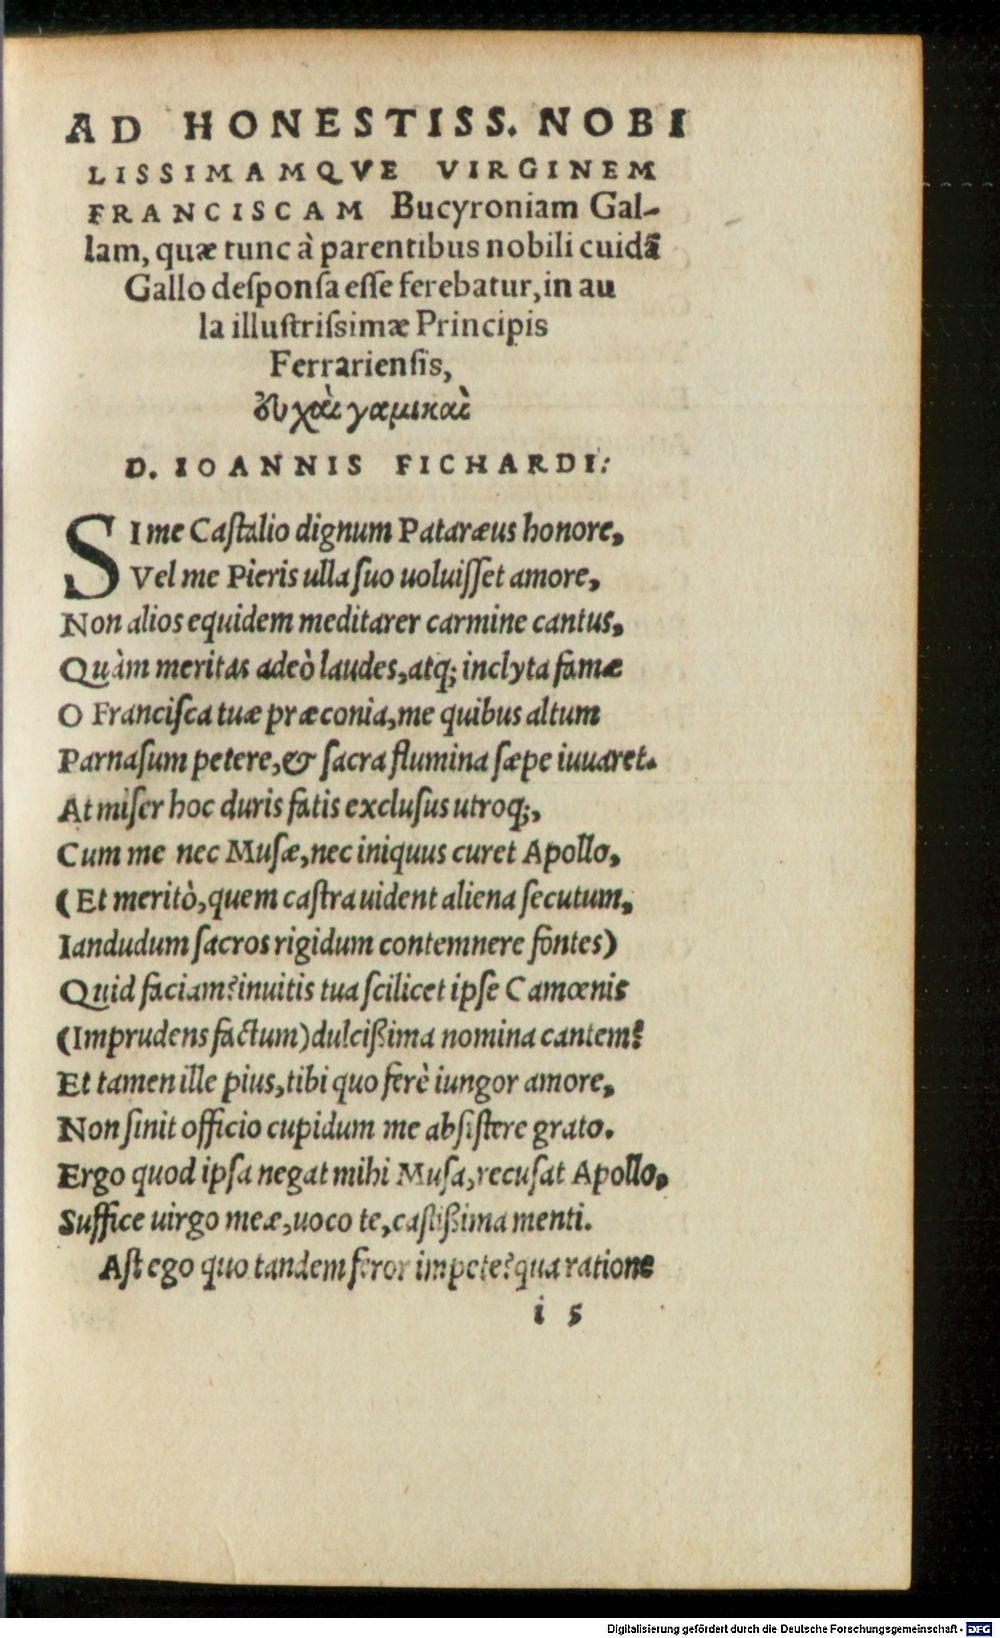 AD HONESTISS. NOBI
LISSIMAMQVE VIRGINEM
FRANCISCAM Bucyroniam Gal-
lam, quæ tunc à parentibus nobili cuidā
Gallo deſponſa eſſe ferebatur, in au
la illuſtriſsimæ Principis
Ferrarienſis,
ἐυχαὶ γαμικαὶ
D. IOANNIS FICHARDI.
SI me Caſtalio dignum Pataræus honore,
Vel me Pieris ulla ſuo uoluiſſet amore,
Non alios equidem meditarer carmine cantus,
Quàm meritas adeò laudes, atq; inclyta famæ
O Franciſca tuæ præconia, me quibus altum
Parnaſum petere, & ſacra flumina ſæpe iuuaret.
At miſer hoc duris fatis excluſus utroq;,
Cum me nec Muſæ, nec iniquus curet Apollo,
(Et meritò, quem caſtra uident aliena ſecutum,
Iandudum ſacros rigidum contemnere fontes)
Quid faciam? inuitis tua ſcilicet ipſe Camœnis
(Imprudens factum) dulcißima nomina cantem?
Et tamen ille pius, tibi quo ferè iungor amore,
Non ſinit officio cupidum me abſiſtere grato.
Ergo quod ipſa negat mihi Muſa, recuſat Apollo,
Suffice uirgo meæ, uoco te, caſtißima menti.
Aſt ego quo tandem feror impete? qua ratione
i 5
Digitalisierung gefördert durch die Deutsche Forschungsgemeinschaft - DFG